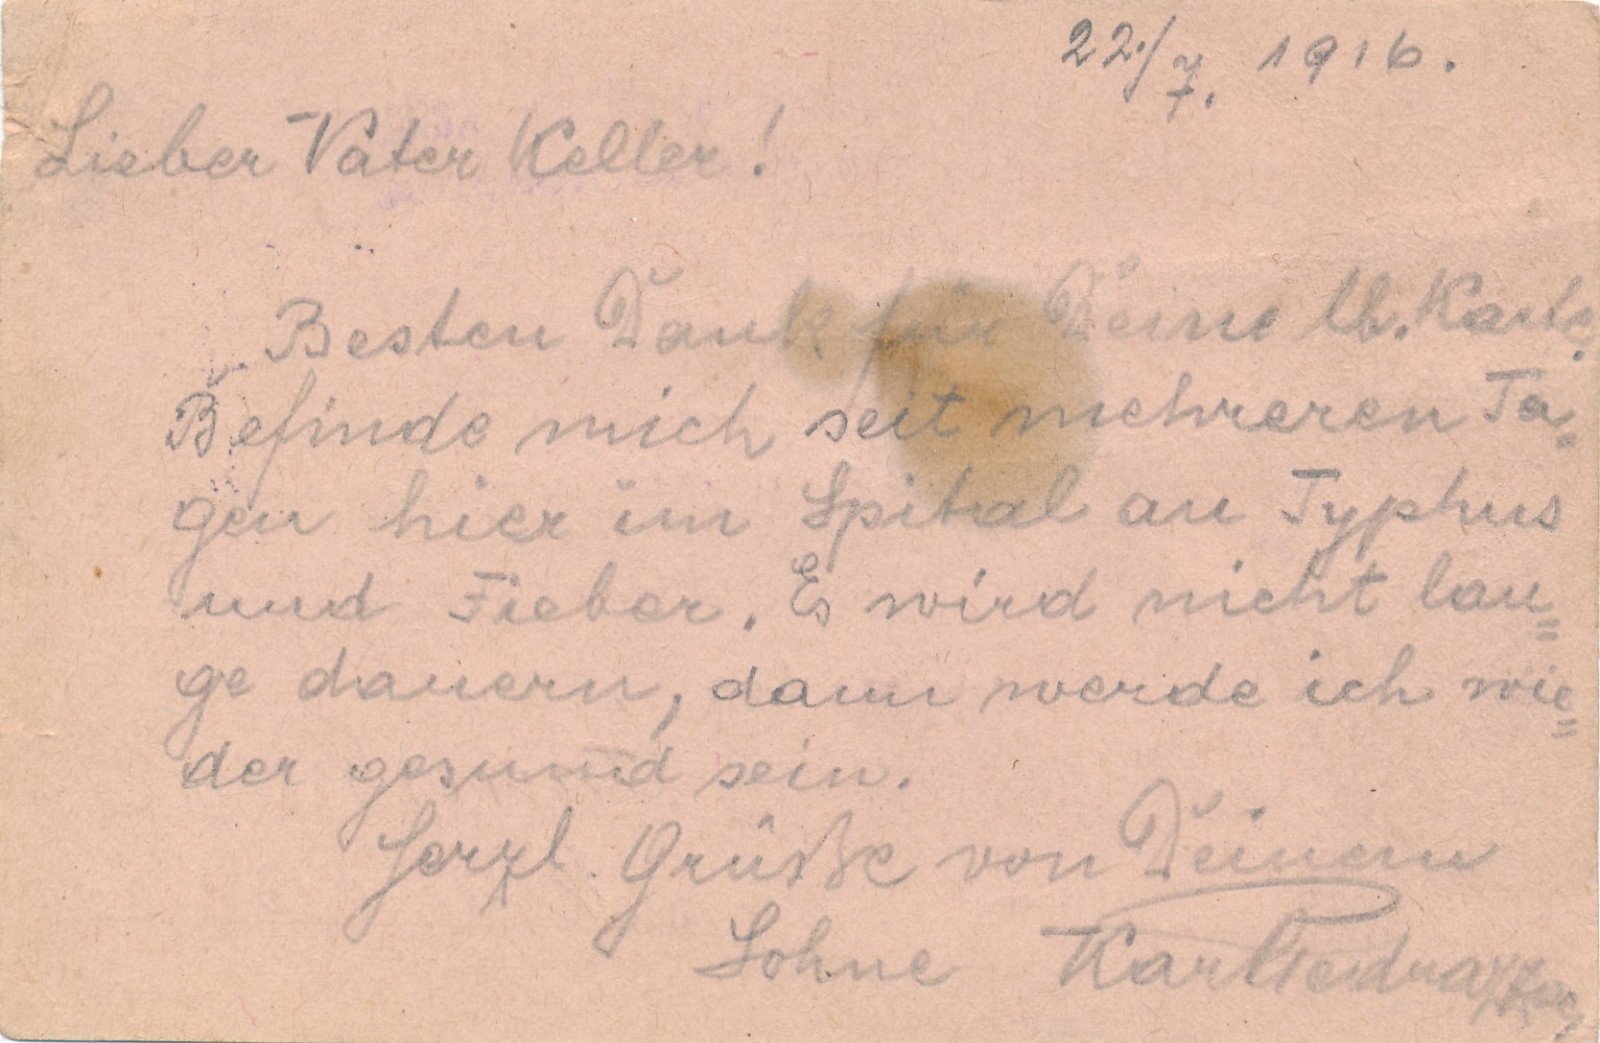 22./7. 1916.
Lieber Vater Keller!
Besten Dank für Deine lb. Karte.
Befinde mich seit mehreren Ta-
gen hier im Spital an Typhus
und Fieber. Es wird nicht lan=
ge dauern, dann werde ich wie=
der gesund sein.
Herzl. Grüße von Deinem
Sohne Karl